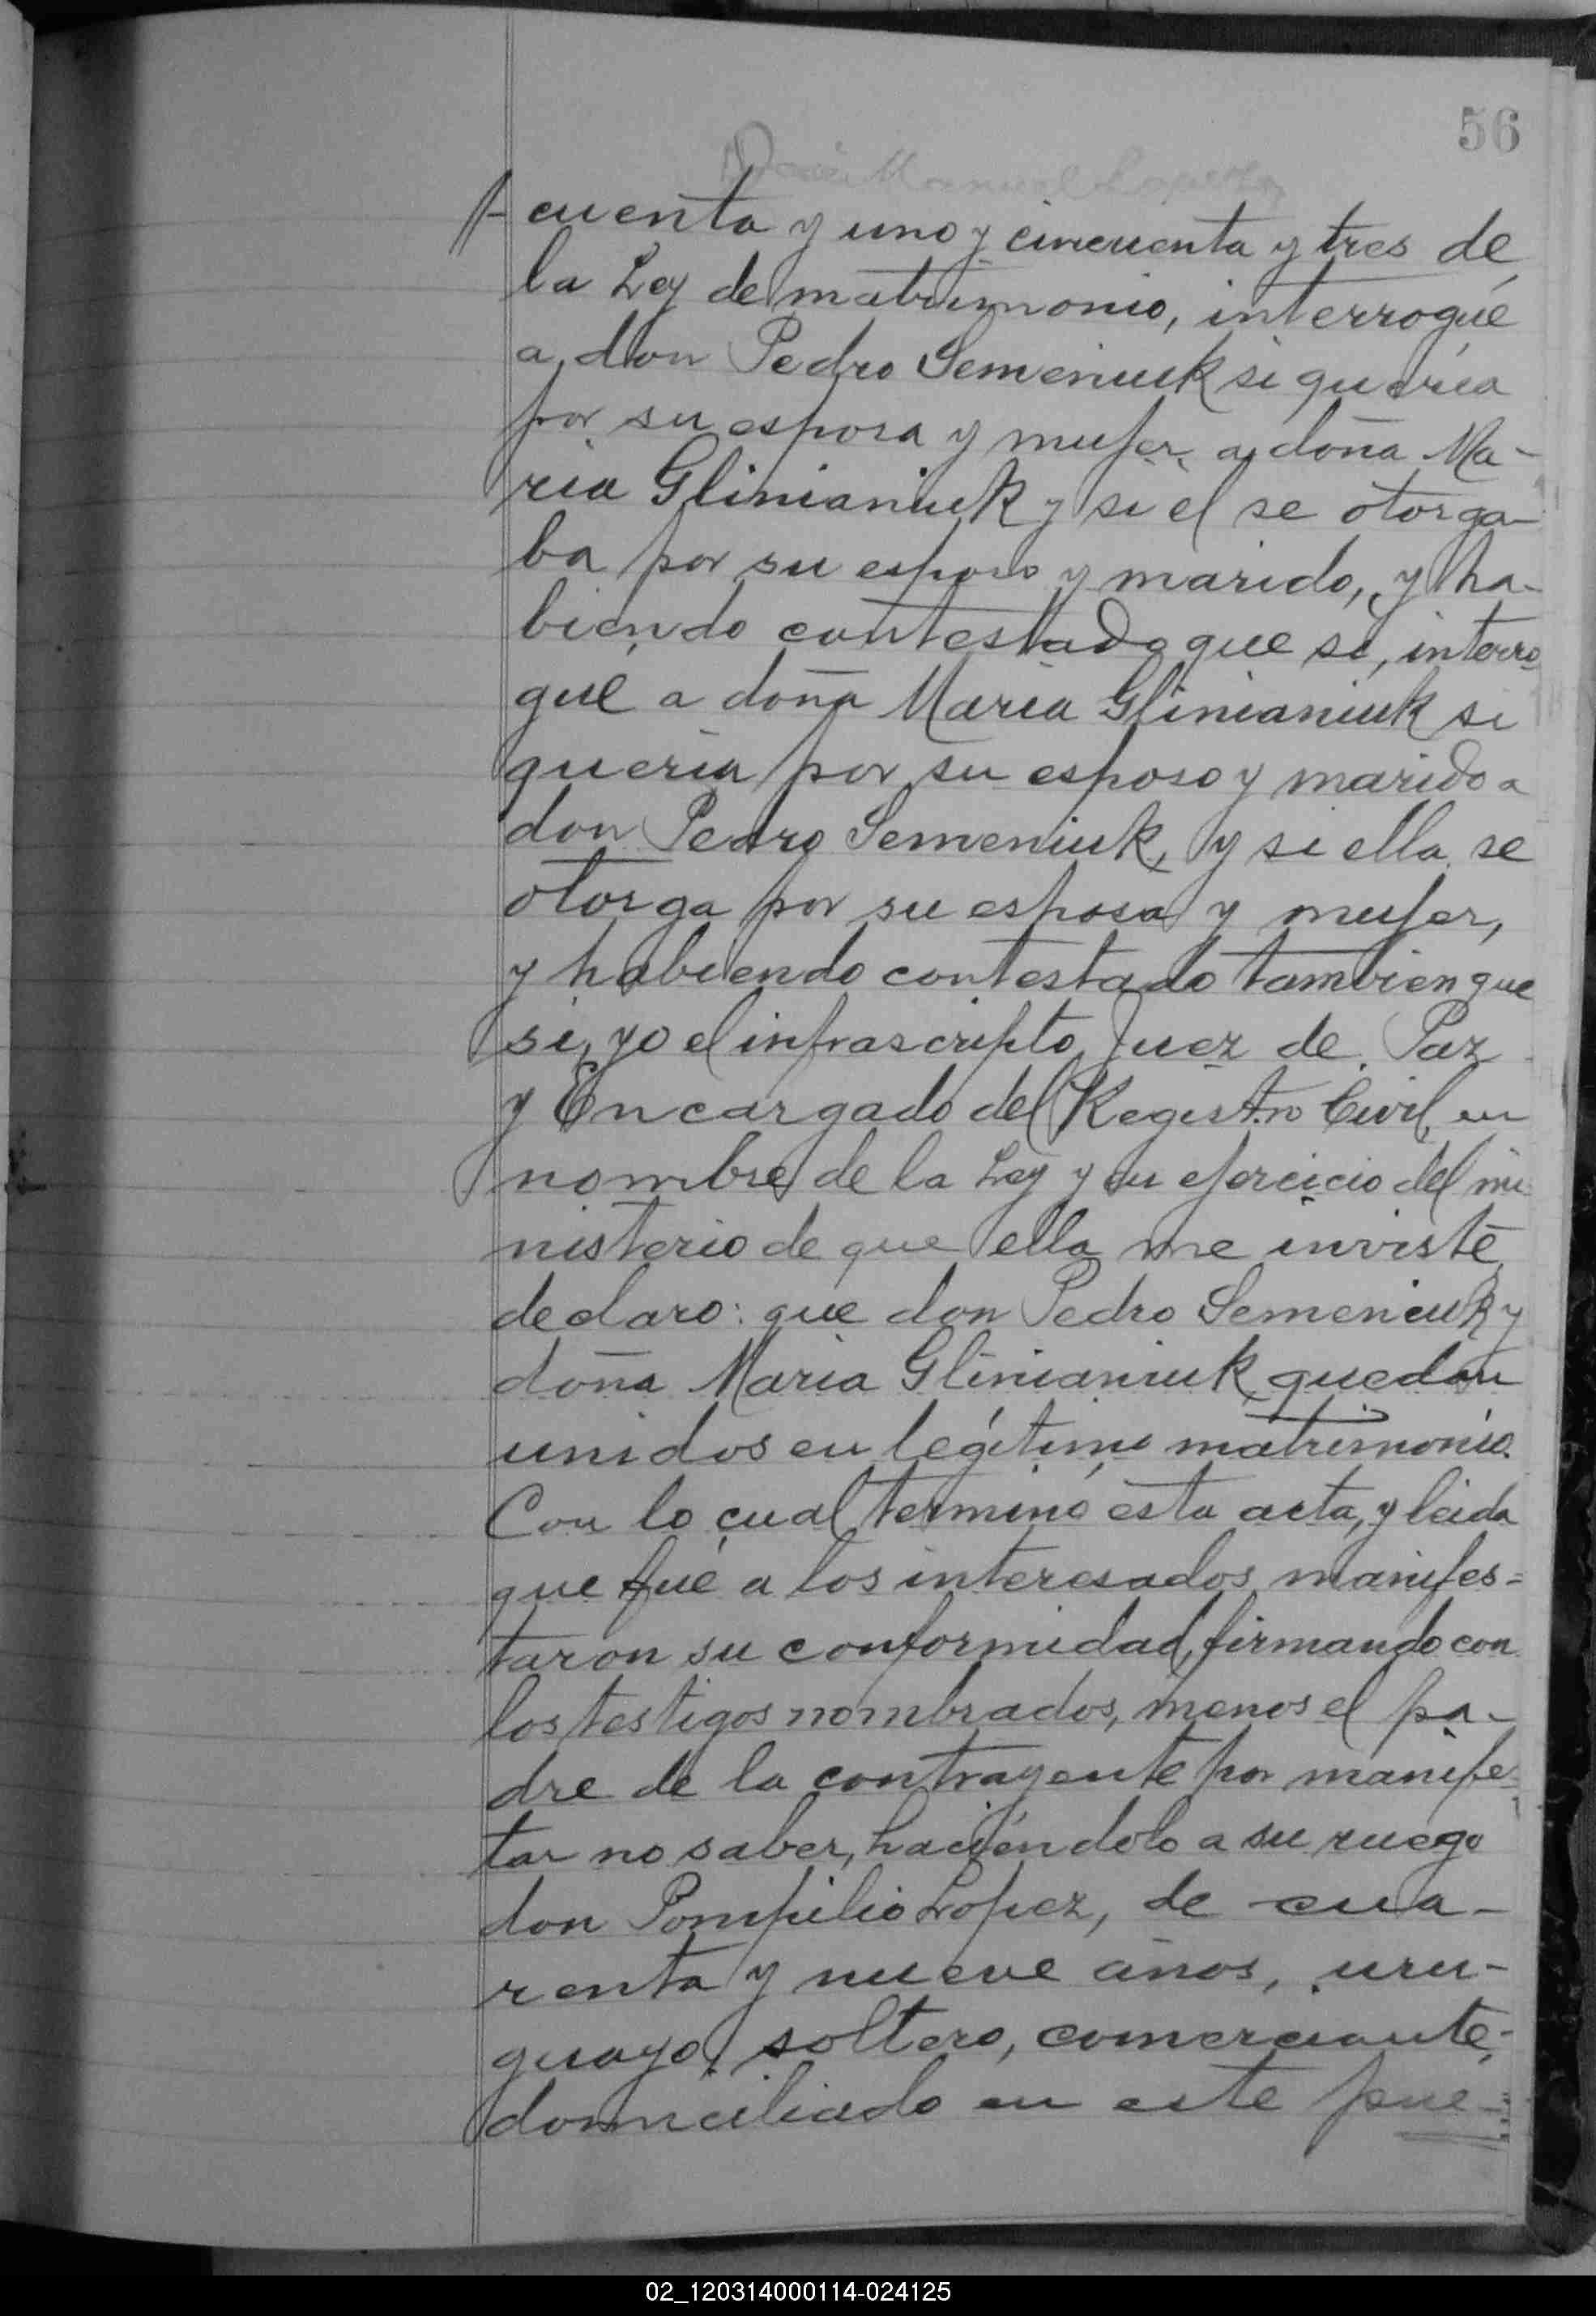 56
cuenta y uno y cincuenta y tres de
la Ley de matrimonio, interrogué
a don Pedro Semeniuk si queria
por su esposa y mujer a doña Ma-
ria Glinianiuk y si el se otorga-
ba por su esposo y marido, y ha-
biendo contestado que si, interro
gue a doña Maria Glinianiuk si
queria por su esposo y marido a
don Pedro Semeniuk, y si ella se
otorga por su esposa y mujer,
y habiendo contestado tambien que
si, yo el infrascripto Juez de Paz
y Encargado del Registro Civil, en
nombre de la Ley y en ejercicio del mi
nisterio de que ella me inviste
declaro: que don Pedro Semeniuk y
doña Maria Glinianiuk quedan
unidos en legítimo matrimonio.
Con lo cual terminó esta acta, y leida
que fué a los interesados manifes=
taron su conformidad, firmando con
los testigos nombrados, menos el pa-
dre de la contrayente por manifes
tar no saber, haciéndolo a su ruego
don Pompilio Lopez, de cua-
renta y nueve años, uru-
guayo, soltero, comerciante,
domiciliado en este pue-
02_120314000114-024125